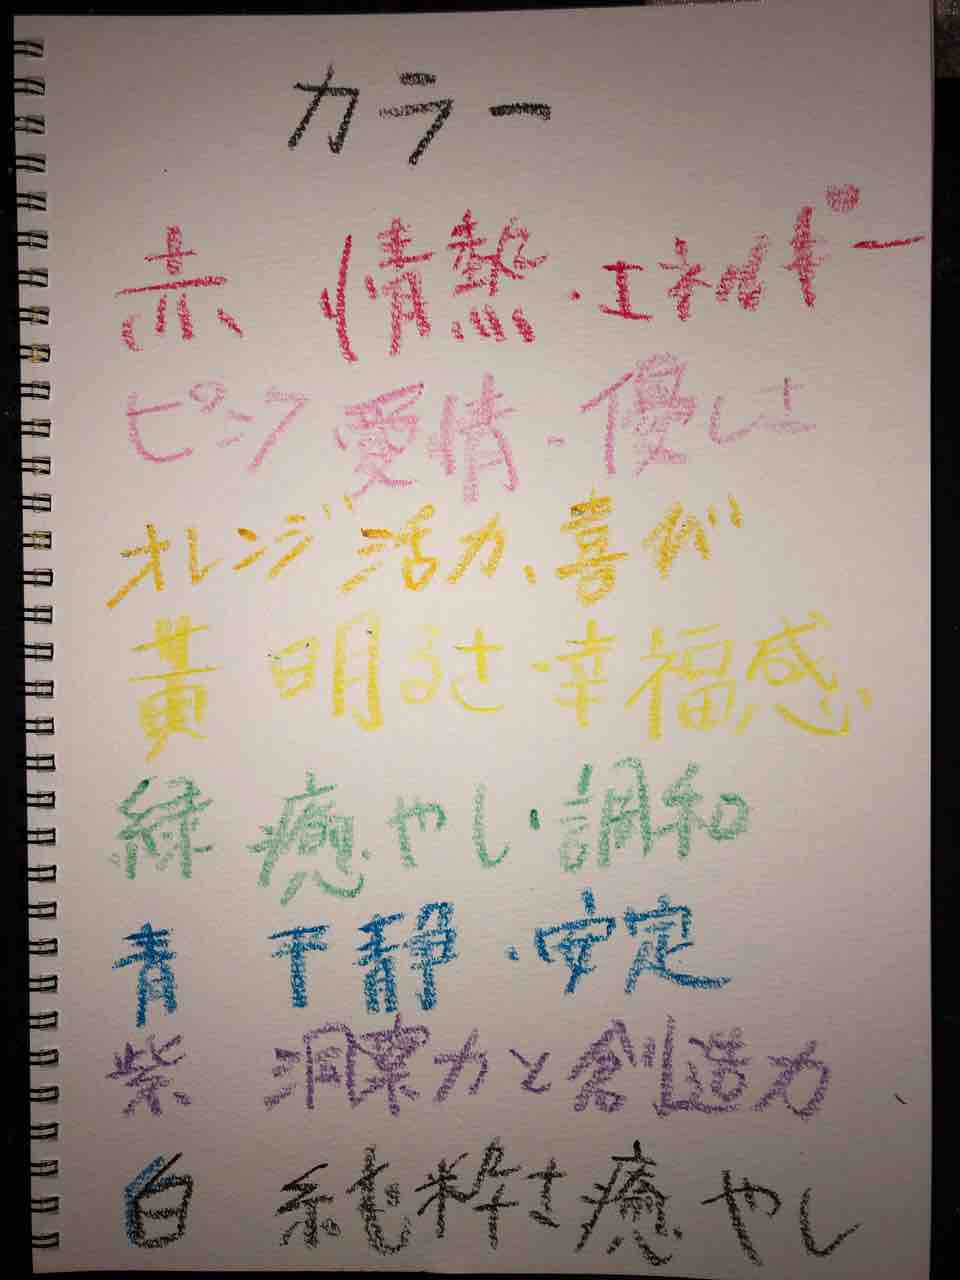 カラー
赤 情熱・エネルギー
ピンク 愛情・優しさ
オレンジ 活力、喜び
黄 明るさ・幸福感
緑 癒やし・調和
青 平静・安定
紫 洞察力と創造力
白 純粋さ癒やし